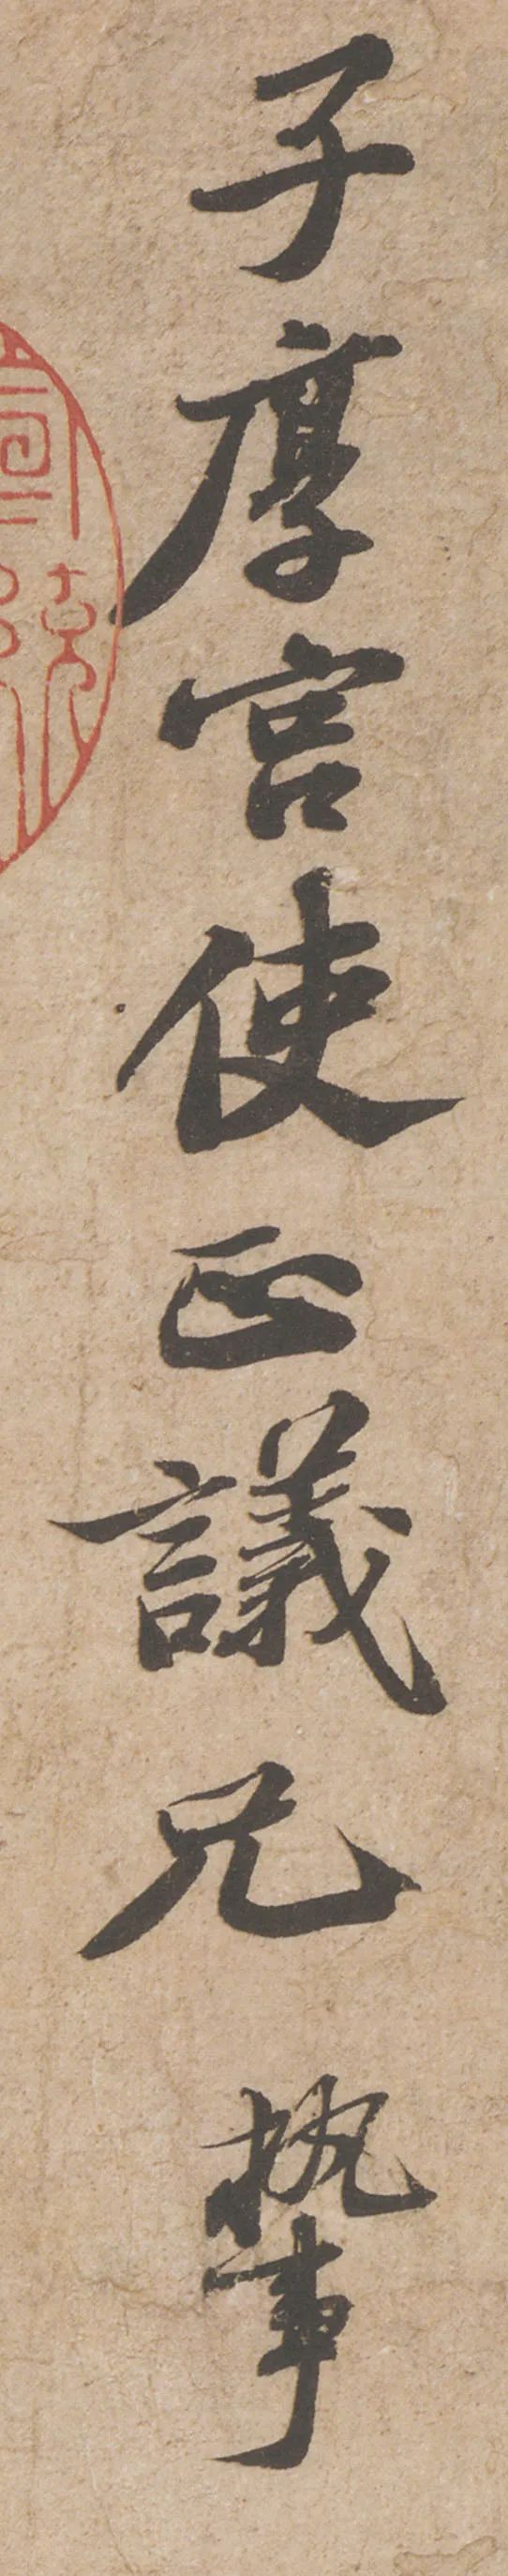 子厚宫使正議兄執事